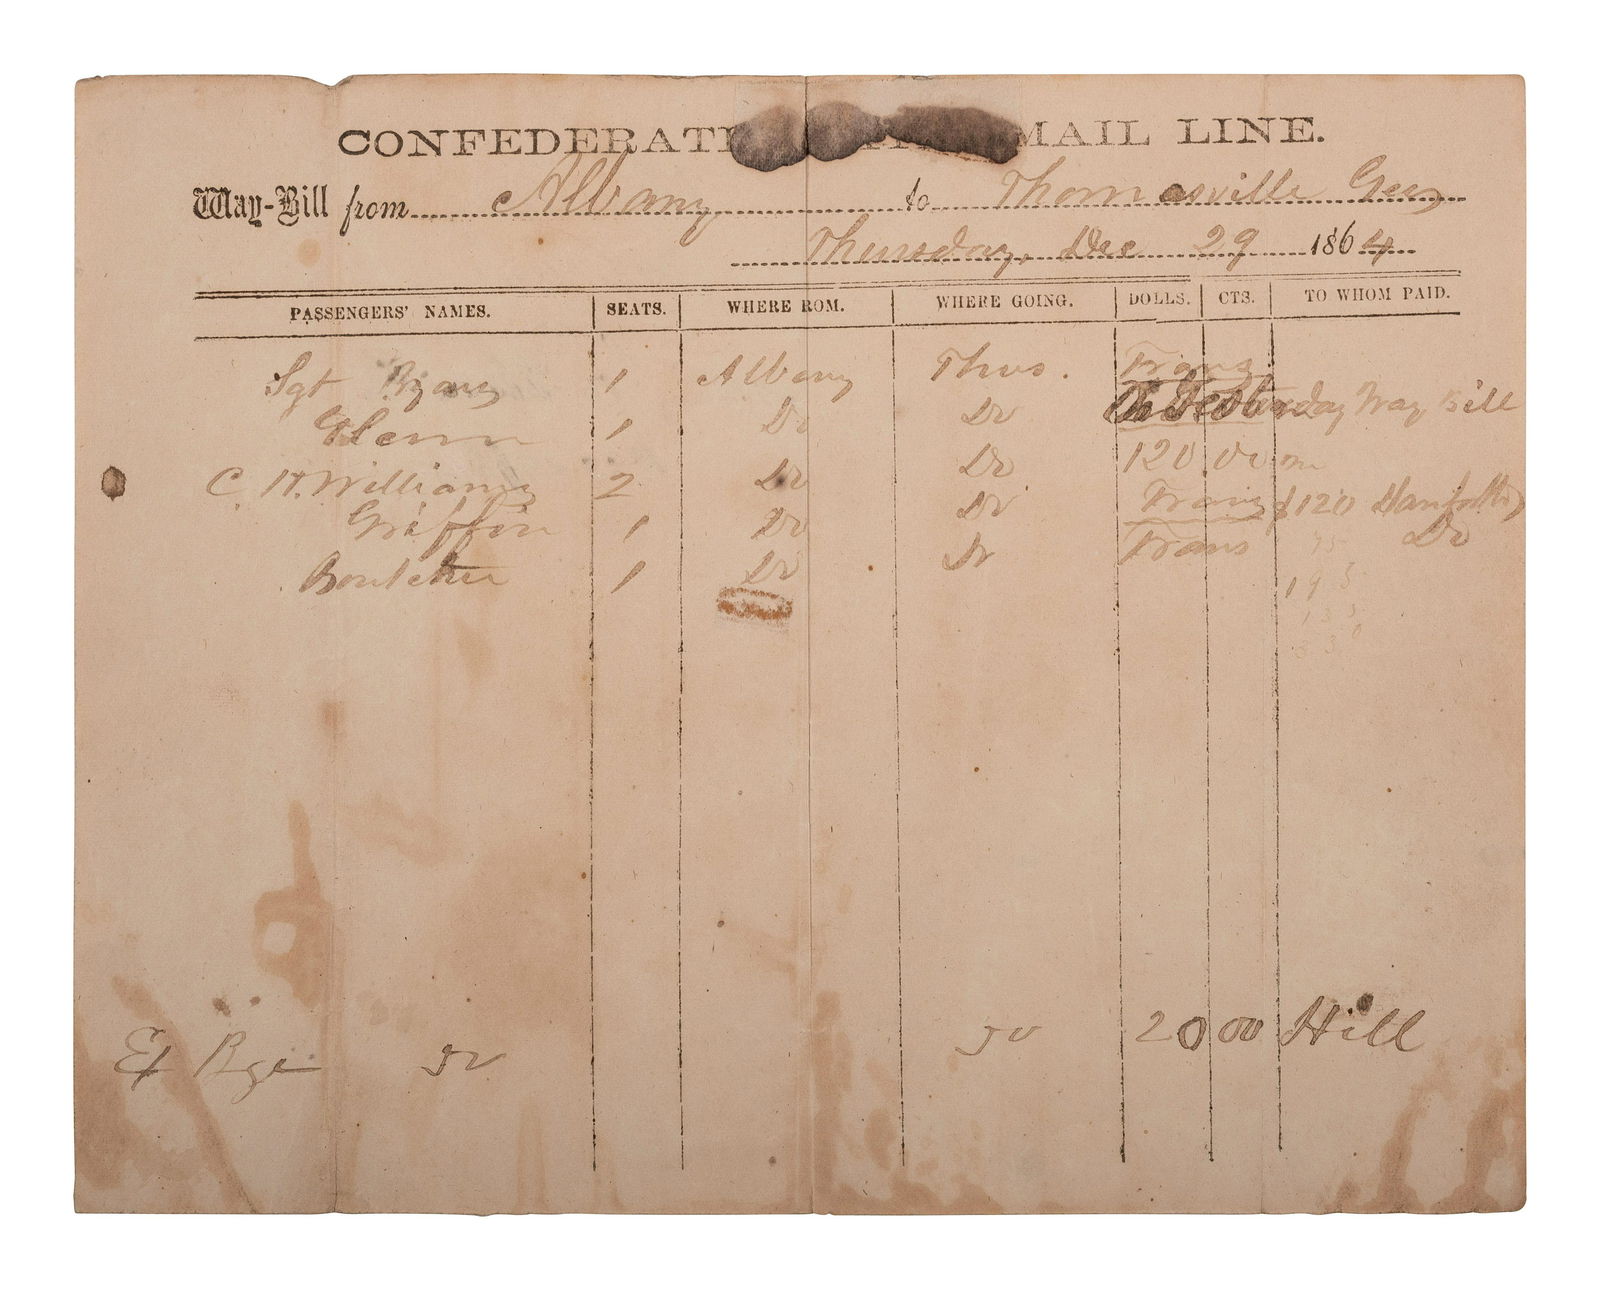 CONFEDERATE MAIL LINE.
Way-Bill from Albany to Thomasville Geo
Thursday, Dec 29 1864
PASSENGERS' NAMES. SEATS. WHERE ROM. WHERE GOING. DOLLS. CTS. TO WHOM PAID.
Sgt 1 Albany Thos. Trans
Glenn 1 Do Do Way Bill
C. H. Williams 2 Do Do 120 00
Griffin 1 Do Do Trans $120
Boutcher 1 Do Do Trans Do
195
Ex Do Do 20 00 Hill